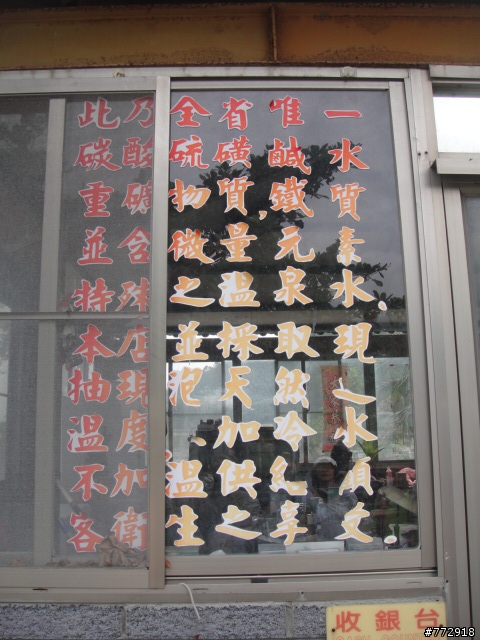 此乃全省唯一
碳酸硫磺鹹水
重礦物質,鐵質
並含微量元素
特殊之溫泉水。
本店並採取現
抽現泡天然之
溫度、加冷水
不加溫供
客衛生之享
收銀台
#772918